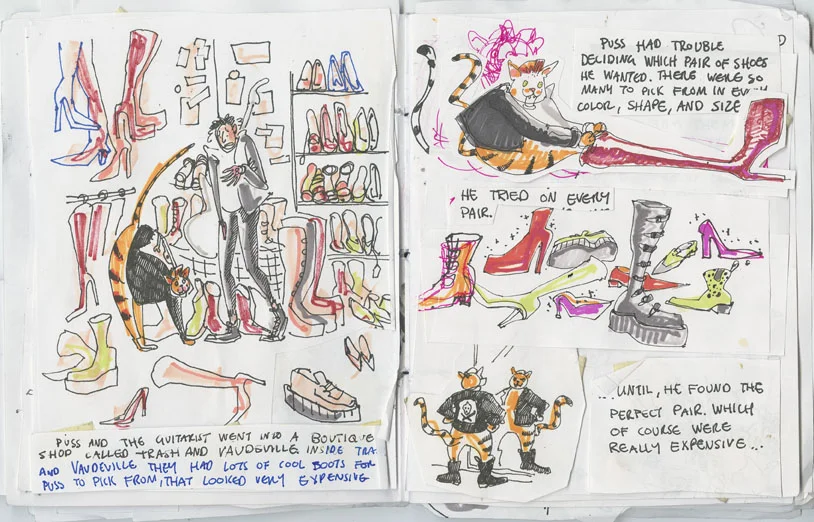 PUSS AND THE GUITARIST WENT INTO A BOUTIQUE
SHOP CALLED TRASH AND VAUDEVILLE INSIDE TRA
AND VAUDEVILLE THEY HAD LOTS OF COOL BOOTS FOR
PUSS TO PICK FROM, THAT LOOKED VERY EXPENSIVE
PUSS HAD TROUBLE
DECIDING WHICH PAIR OF SHOES
HE WANTED. THERE WERE SO
MANY TO PICK FROM IN EVERY
COLOR, SHAPE, AND SIZE
HE TRIED ON EVERY
PAIR.
...UNTIL, HE FOUND THE
PERFECT PAIR. WHICH
OF COURSE WERE
REALLY EXPENSIVE...